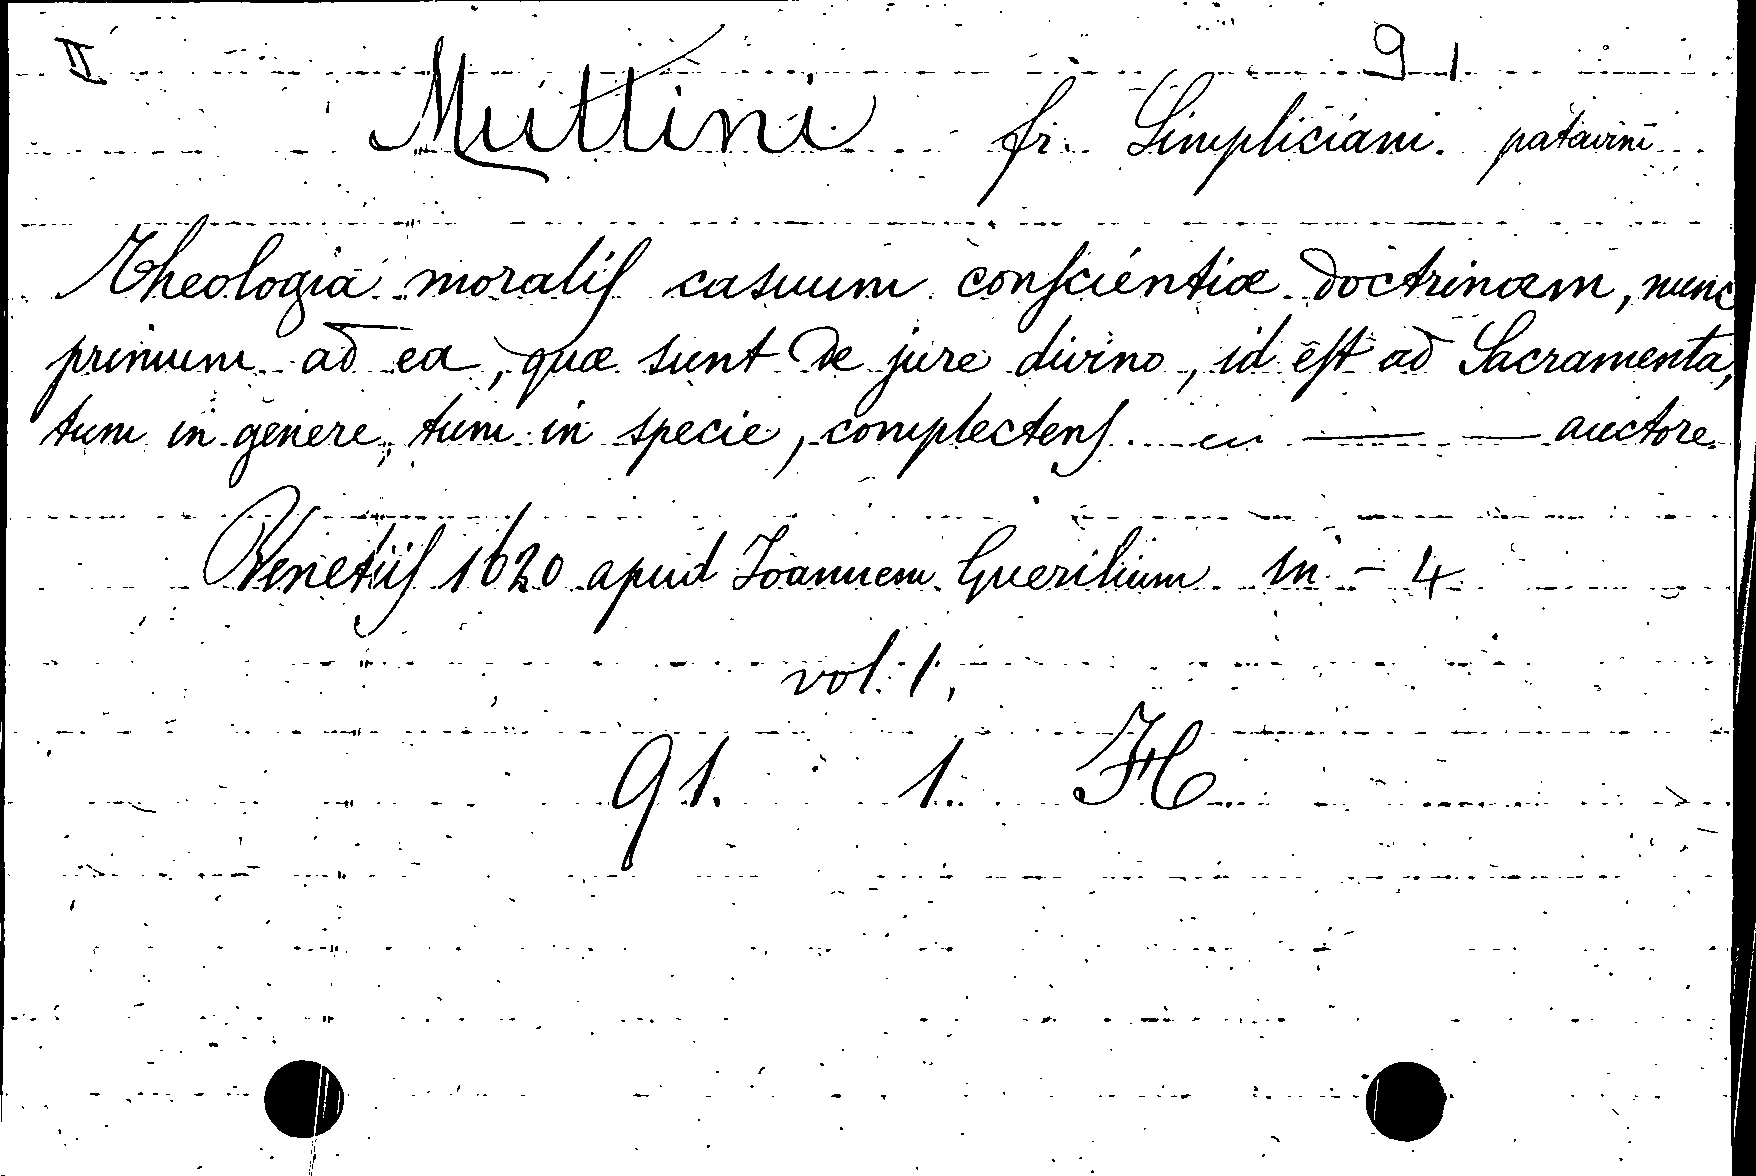 II 91
Muttini fr. Simpliciani. patavini
Theologia moralis casuum conscientiæ doctrinam, nunc
primum ad ea, quæ sunt de jure divino, id est ad Sacramenta,
tum in genere, tum in specie, complectens. — — auctore
Venetiis 1620 apud Ioannem Guerilium in - 4
vol. 1,
91. 1. H